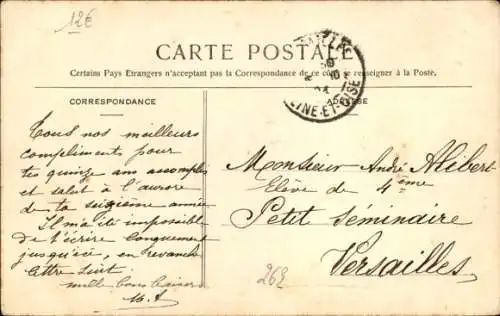 12€
CARTE POSTALE
Certains Pays Etrangers n'acceptant pas la Correspondance de ce côté, se renseigner à la Poste.
CORRESPONDANCE
ADRESSE
VERSAILLES
SEINE-ET-OISE
Tous nos meilleurs
compliments pour
tes quinze ans accomplis
et salut à l'aurore
de ta seizième année
Il m'a été impossible
de t'écrire longuement
jusqu'ici, en revanche
lettre suit
mille bons baisers
Monsieur André Alibert
Elève de 4ème
Petit Séminaire
Versailles
262